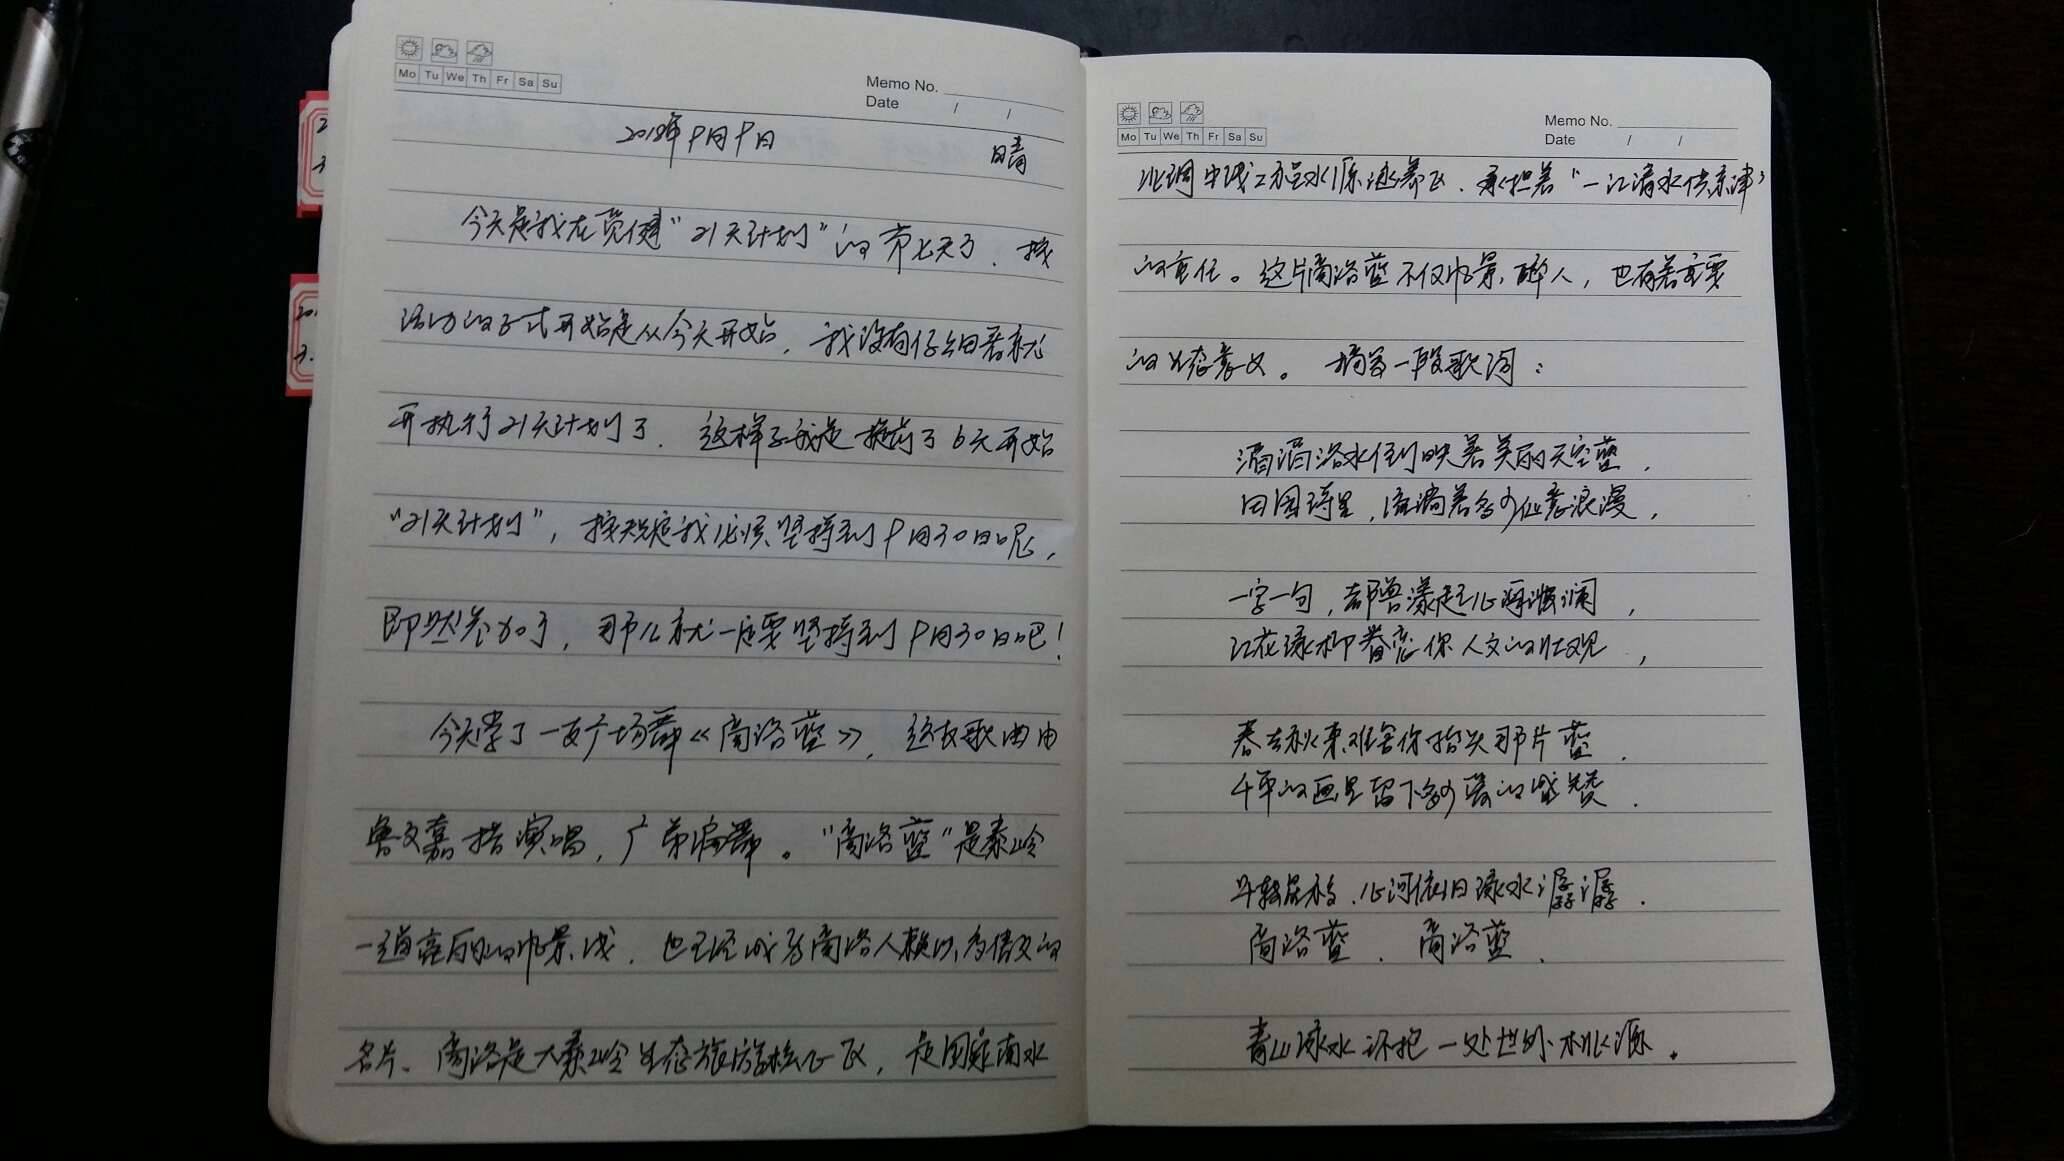 Mo Tu We Th Fr Sa Su
Memo No.
Date / /
2018年9月9日 晴
今天是我在觅健“21天计划”的第七天了，按
活动的正式开始是从今天开始，我没有仔细看就
开执行21天计划了，这样子我是提前了6天开始
“21天计划”，按规定我必须坚持到9月30日呢，
即然参加了，那么就一定要坚持到9月30日吧！
今天学了一支广场舞《商洛蓝》，这支歌曲由
鲁文嘉措演唱，广弟编舞。“商洛蓝”是秦岭
一道亮丽的风景线，也已经成为商洛人赖以为倚仗的
名片、商洛是大秦岭生态旅游核心区，是国家南水
20
3.
Mo Tu We Th Fr Sa Su
Memo No.
Date / /
北调中线工程水源涵养区，承担着“一江清水供京津”
的重任。这片商洛蓝不仅风景醉人，也有着重要
的生态意义。摘写一段歌词：
湉湉洛水倒映着美丽的天空蓝，
田园诗里，流淌着多少仙意浪漫，
一字一句，都曾漾起心海微澜，
江花绿柳眷恋你人文的壮观，
春去秋来难舍你抬头那片蓝，
千年的画里留下多少墨的盛赞，
斗转星移，心河依旧绿水潺潺，
商洛蓝，商洛蓝，
青山绿水环抱一处世外桃源。